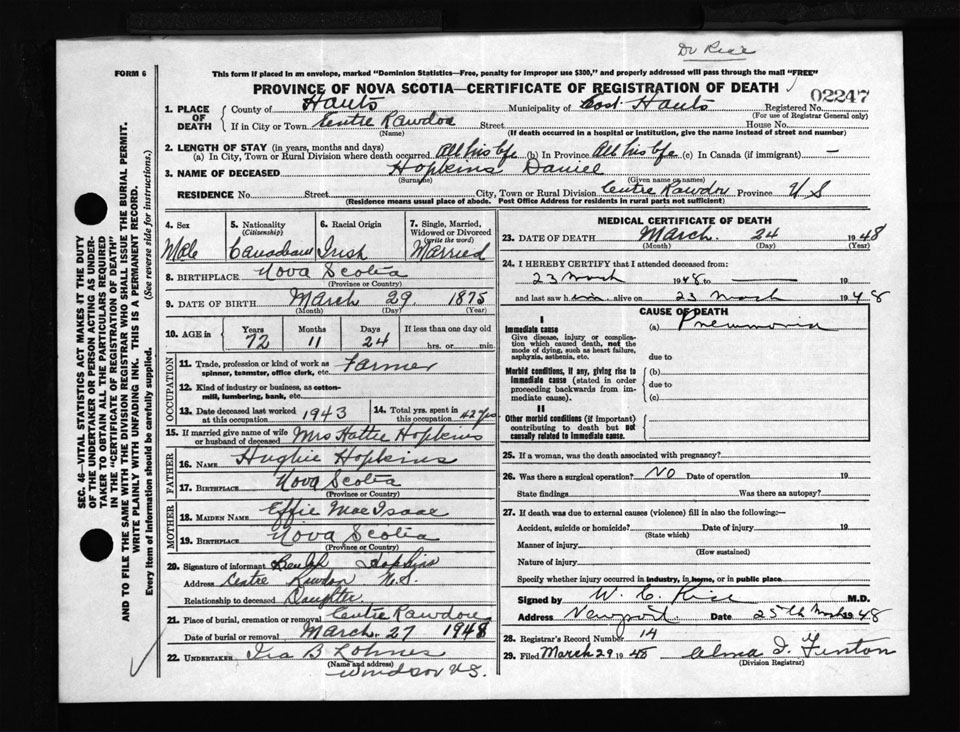 Dr Rice
FORM 6
This form if placed in an envelope, marked "Dominion Statistics—Free, penalty for improper use $300," and properly addressed will pass through the mail "FREE"
PROVINCE OF NOVA SCOTIA—CERTIFICATE OF REGISTRATION OF DEATH
02247
1. PLACE OF DEATH County of Hants Municipality of East Hants Registered No.
(For use of Registrar General only)
If in City or Town Centre Rawdon Street House No.
(Name) (If death occurred in a hospital or institution, give the name instead of street and number)
2. LENGTH OF STAY (in years, months and days)
(a) In City, Town or Rural Division where death occurred All his life (b) In Province All his life (c) In Canada (if immigrant) —
3. NAME OF DECEASED Hopkins Daniel
(Surname) (Given name or names)
RESIDENCE No. Street City, Town or Rural Division Centre Rawdon Province N S
(Residence means usual place of abode. Post Office Address for residents in rural parts not sufficient)
SEC. 46—VITAL STATISTICS ACT MAKES IT THE DUTY
OF THE UNDERTAKER OR PERSON ACTING AS UNDER-
TAKER TO OBTAIN ALL THE PARTICULARS REQUIRED
IN THE "CERTIFICATE OF REGISTRATION OF DEATH"
AND TO FILE THE SAME WITH THE DIVISION REGISTRAR WHO SHALL ISSUE THE BURIAL PERMIT.
WRITE PLAINLY WITH UNFADING INK. THIS IS A PERMANENT RECORD.
Every item of information should be carefully supplied. (See reverse side for instructions.)
4. Sex 5. Nationality (Citizenship) 6. Racial Origin 7. Single, Married, Widowed or Divorced (write the word)
Male Canadian Irish Married
8. BIRTHPLACE Nova Scotia
(Province or Country)
9. DATE OF BIRTH March 29 1875
(Month) (Day) (Year)
10. AGE in Years Months Days If less than one day old
72 11 24 hrs. or min.
OCCUPATION
11. Trade, profession or kind of work as spinner, teamster, office clerk, etc. Farmer
12. Kind of industry or business, as cotton-mill, lumbering, bank, etc.
13. Date deceased last worked at this occupation 1943 14. Total yrs. spent in this occupation 42 yrs
15. If married give name of wife or husband of deceased Mrs Hattie Hopkins
FATHER
16. NAME Hughie Hopkins
17. BIRTHPLACE Nova Scotia
(Province or Country)
MOTHER
18. MAIDEN NAME Effie MacIsaac
19. BIRTHPLACE Nova Scotia
(Province or Country)
20. Signature of informant Hopkins
Address Centre Rawdon N.S.
Relationship to deceased Daughter
21. Place of burial, cremation or removal Centre Rawdon
Date of burial or removal March 27 1948
22. UNDERTAKER Ira B Lohnes
(Name and address)
Windsor N.S.
MEDICAL CERTIFICATE OF DEATH
23. DATE OF DEATH March 24 1948
(Month) (Day) (Year)
24. I HEREBY CERTIFY that I attended deceased from:
23 March 1948 to — 19
and last saw him alive on 23 March 1948
CAUSE OF DEATH
I
Immediate cause (a) Pneumonia
Give disease, injury or complication which caused death, not the mode of dying, such as heart failure, asphyxia, asthenia, etc. due to
Morbid conditions, if any, giving rise to immediate cause (stated in order proceeding backwards from immediate). (b)
due to
(c)
II
Other morbid conditions (if important) contributing to death but not causally related to immediate cause.
25. If a woman, was the death associated with pregnancy?
26. Was there a surgical operation? No Date of operation 19
State findings Was there an autopsy?
27. If death was due to external causes (violence) fill in also the following:—
Accident, suicide or homicide? Date of injury 19
(State which)
Manner of injury
(How sustained)
Nature of injury
Specify whether injury occurred in industry, in home, or in public place
Signed by W. C. Rice M.D.
Address Newport. Date 25th March 1948
28. Registrar's Record Number 14
29. Filed March 29 1948 Alma I. Fenton
(Division Registrar)